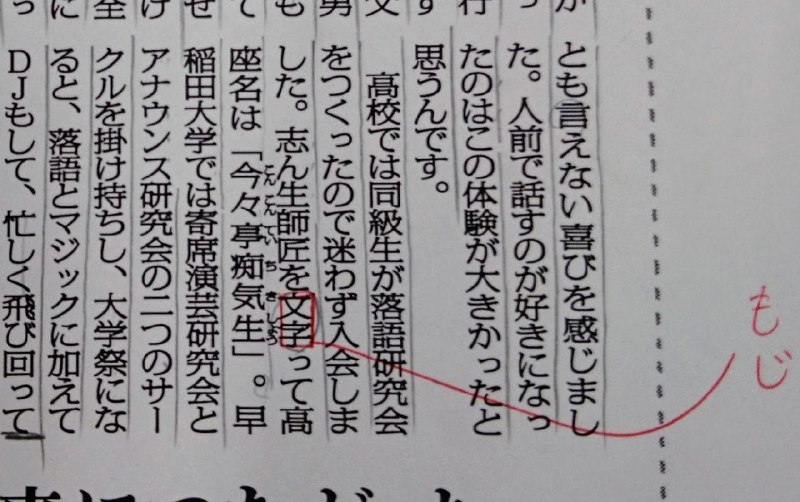 もじ
とも言えない喜びを感じまし
た。人前で話すのが好きになっ
たのはこの体験が大きかったと
思うんです。
高校では同級生が落語研究会
をつくったので迷わず入会しま
した。志ん生師匠を文字って高
こんこんていちきしょう
座名は「今々亭痴気生」。早
稲田大学では寄席演芸研究会と
アナウンス研究会の二つのサー
クルを掛け持ちし、大学祭にな
ると、落語とマジックに加えて
DJもして、忙しく飛び回って